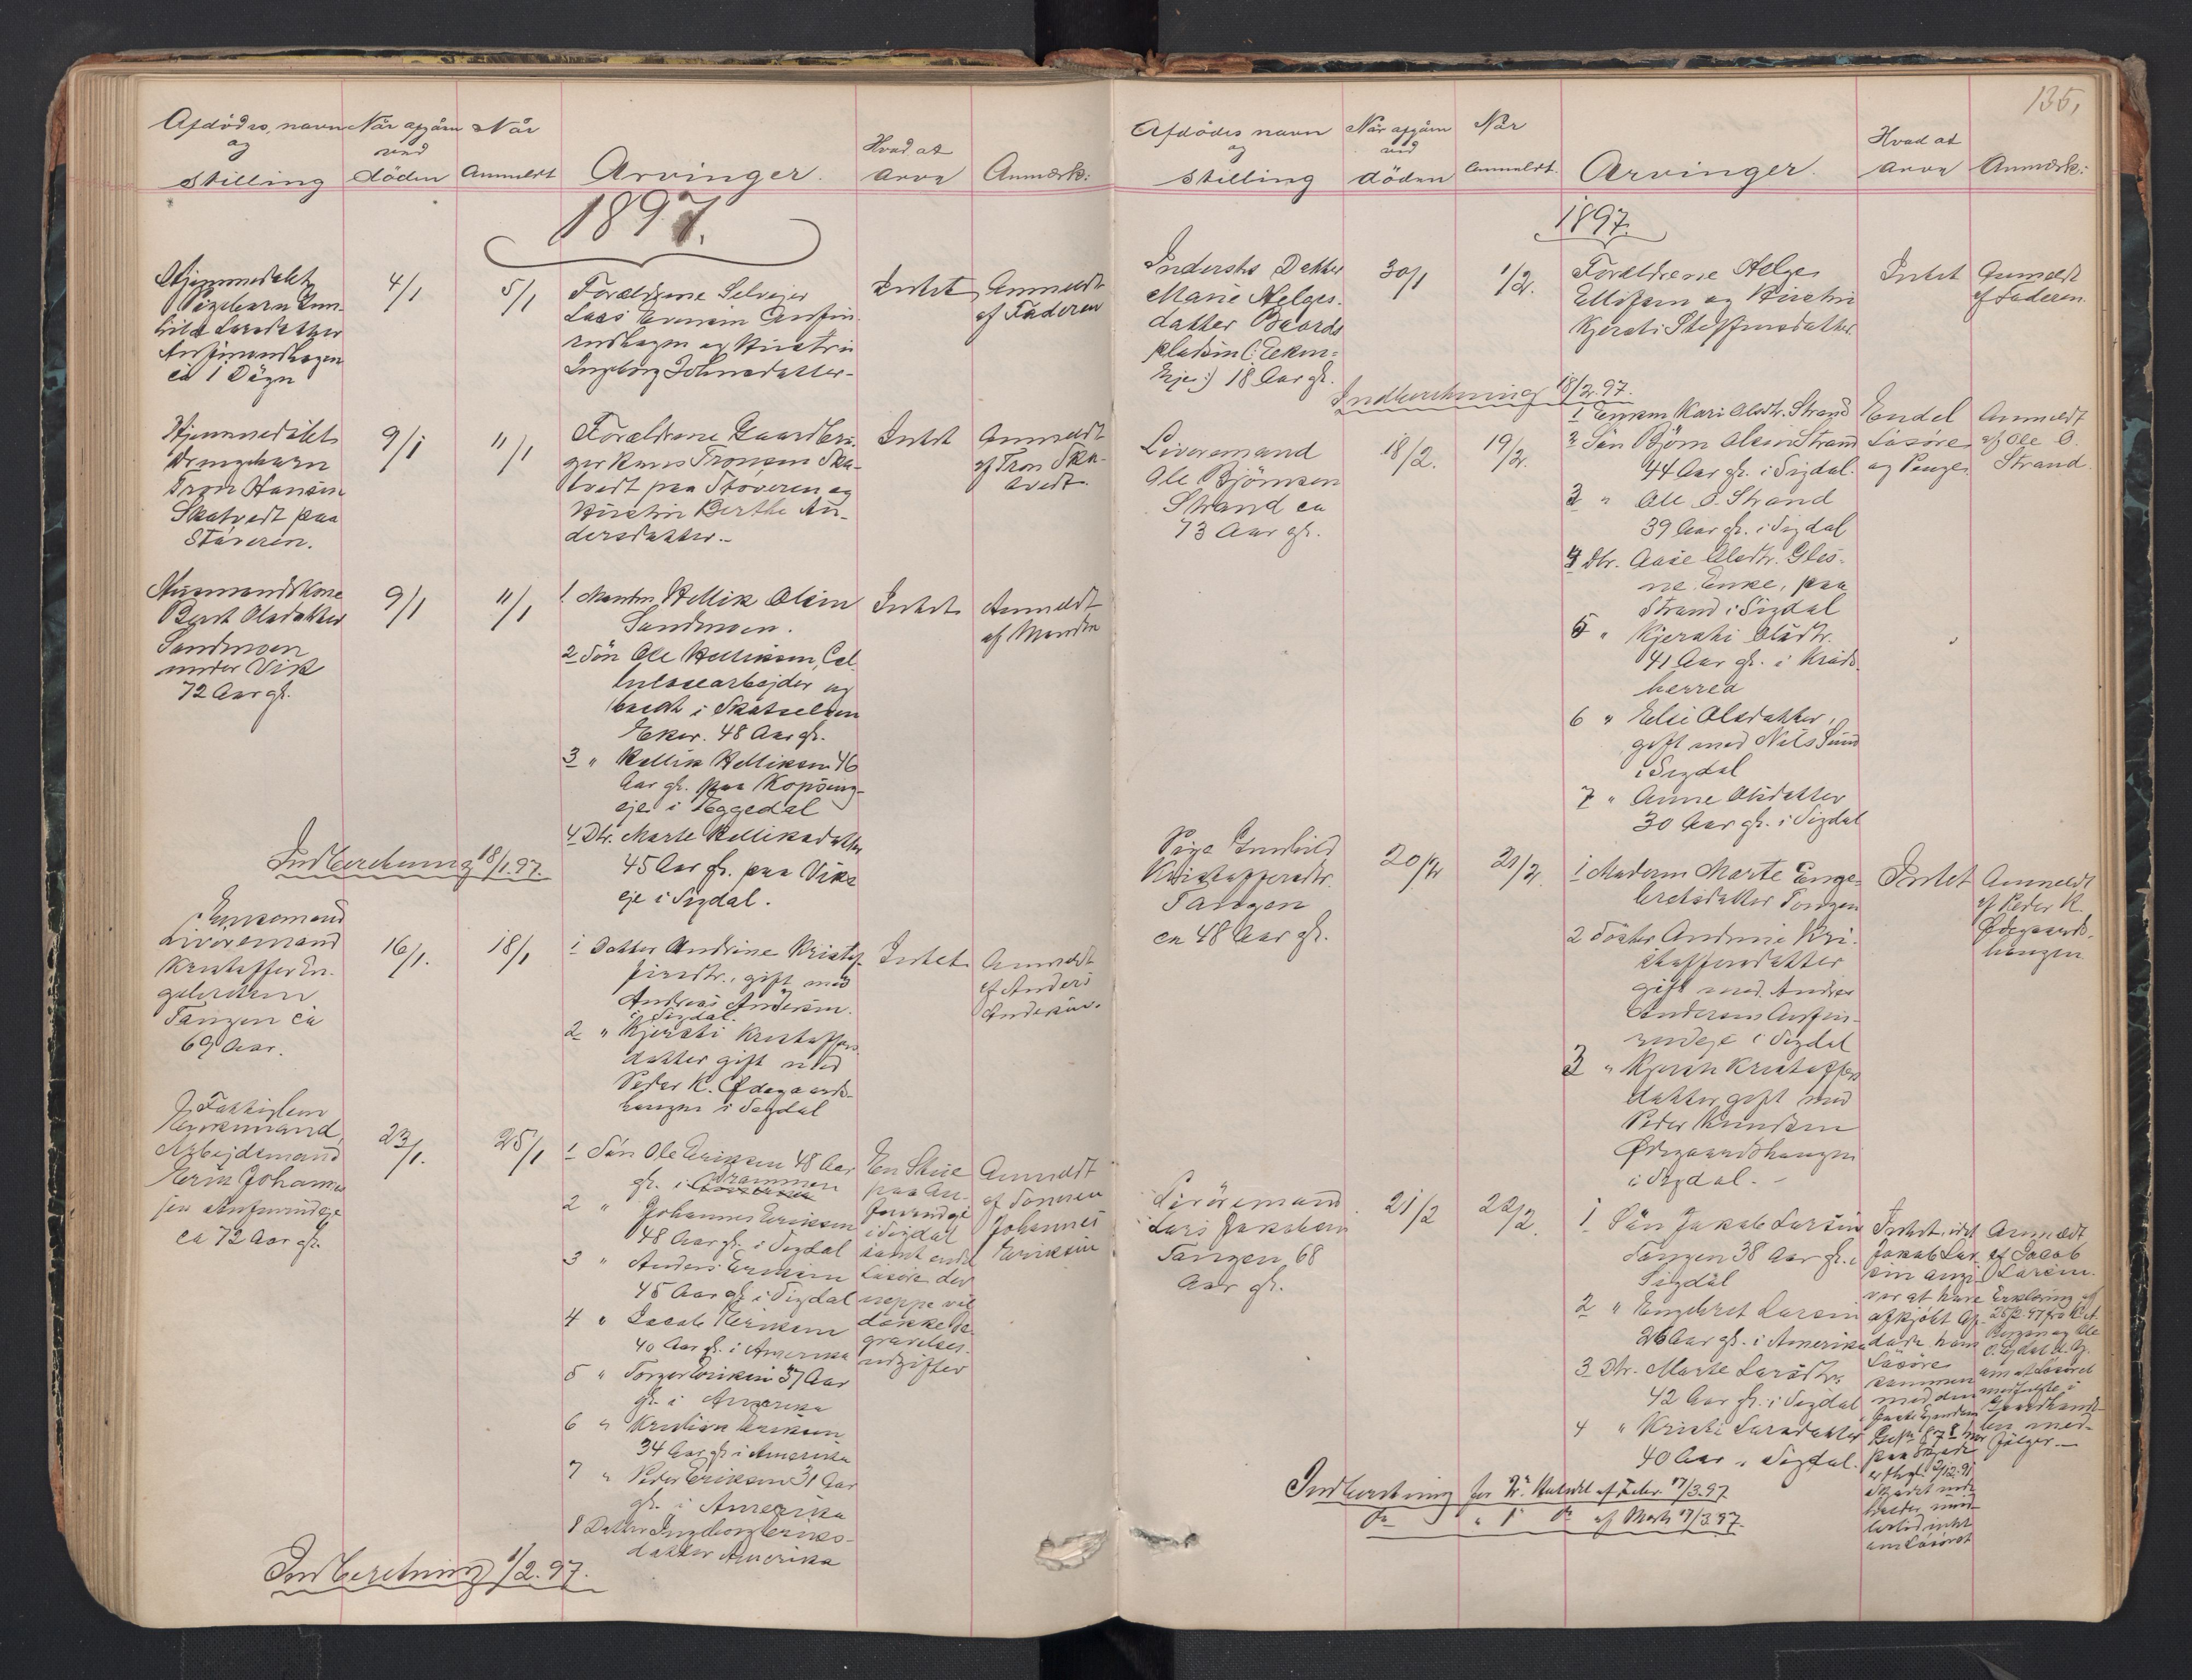 Afdödes navn
og
stilling
När afgåen
ved
döden
Når
Anmeldt
Arvinger.
Hvad at
arve
Anmærk:
1897.
Hjemmedöbt
Pigebarn Gun-
hild Larsdatter
Anfinrudhagen
ca 1 Dögn
4/1
5/1
Forældrene Selveier
Lars Anfin-
rudhagen og Hustru
Ingeborg Johnsdatter-
Intet
Anmeldt
af Faderen
Hjemmedöbt
Drengebarn
Tron Hansen
Skatvedt paa
Stoveren.
9/1
11/1
Forældrene Gaardbru-
ger Hans Tronsen Ska-
tvedt paa Stoveren og
Hustru Berthe An-
dersdatter.-
Intet
Anmeldt
af Tron Ska-
tvedt.
Husmandskone
Berit Olsdatter
Sandmoen
under Vik
72 Aar gl.
9/1
11/1
1 Manden Hellik Olsen
Sandmoen.
2 Sön Ole Helliksen, Cel-
lulosearbejder og
bosat i Skotselven
Eker. 48 Aar gl.
3 " Hellik Helliksen 46
Aar gl. paa Kopseng-
eje i Eggedal
4 Dtr. Marte Helliksdatter
45 Aar gl. paa Viks
eje i Sigdal.
Intet
Anmeldt
af Manden
Indberetning 18/1.97.
Enkemand
Livöremand
Kristoffer En-
gebretsen
Tangen ca
69 Aar.
16/1.
18/1
1 Datter Andrine Kristof-
fersdtr., gift med
Andreas Andersen.
i Sigdal.
2 " Kjersti Kristoffers
datter gift med
Peder K. Ødegaards-
haugen i Sigdal
Intet
Anmeldt
af Anders
Andersen.
Fattiglem
Enkemand,
Arbejdsmand
Erik Johannes-
sen Anfinrudeje
ca 72 Aar gl.
23/1.
25/1
1 Sön Ole Eriksen 48 Aar
gl. i Drammen
2 " Johannes Eriksen
48 Aar gl. i Sigdal
3 " Anders Eriksen
45 Aar gl i Sigdal
4 " Jacob Eriksen
40 Aar gl. i Amerika
5 " Torger Eriksen 37 Aar
gl. i Amerika
6 " Kristian Eriksen
34 Aar gl i Amerika
7 " Peder Eriksen 31 Aar
gl. i Amerika
8 Datter Ingeborg Eriks-
datter Amerika
En Stue
paa An-
finrudeje
i Sigdal
samt endel
Lösöre der
neppe vil
dække be-
gravelses-
udgifter
Anmeldt
af Sönnen
Johannes
Eriksen
Indberetning 1/2.97.
135,
Afdödes navn
og
stilling
Når afgåen
ved
döden
Når
Anmeldt.
Arvinger.
Hvad at
arve
Anmærk:
1897.
Inderstes Datter
Marie Helges-
datter Baards
pladsen (: Eken-
eje:) 18 Aar gl.
30/1
1/2.
Forældrene Helge
Ellefsen og Hustru
Kjersti Steffensdatter
Intet
Anmeldt
af Faderen.
Indberetning 18/2.97.
Livöremand
Ole Björnsen
Strand ca
73 Aar gl.
18/2.
19/2.
1 Enken Kari Olsdtr. Strand
2 Sön Björn Olsen Strand
44 Aar gl. i Sigdal.
3 " Ole O. Strand
39 Aar gl. i Sigdal
4 Dtr. Aase Olsdtr. Gles-
ne Enke, paa
Strand i Sigdal
5 " Kjersti Olsdtr.
41 Aar gl. i Kröds-
herred
6 " Elsi Olsdatter,
gift med Nils
i Sigdal
7 " Anne Olsdatter
30 Aar gl. i Sigdal
Endel
Lösöre
og Penge.
Anmeldt
af Ole O.
Strand.
Pige Gunhild
Kristoffersdtr.
Tangen
ca 48 Aar gl.
20/2
21/2.
1 Moderen Marte Enge-
bretsdatter Tangen
2 Söster Andrine Kri-
stoffersdatter
gift med Andreas
Andersen Anfin-
rudeje i Sigdal
3 " Kjersti Kristoffers
datter gift med
Peder Knudsen
Ødegaardshaugen
i Sigdal.-
Intet
Anmeldt
af Peder K.
Ødegaards-
haugen.
Livöremand
Lars Jakobsen
Tangen 68
Aar gl.
21/2
22/2.
1 Sön Jakob Larsen
Tangen 38 Aar gl. i
Sigdal
2 " Engebret Larsen
26 Aar gl. i Amerika
3 Dtr. Marte Larsdtr.
42 Aar gl. i Sigdal
4 " Kristi Larsdatter
40 Aar i Sigdal.
Intet, idet
Jakob Lar-
sen angi-
ver at have
afkjöbt Af-
döde hans
Lösöre
sammen
med den
faste Ejendom
paa Skjöde
Skjödet inde-
holder imid-
lertid intet
om Lösöret
Anmeldt
af Jacob
Larsen.
Erklæring af
om at Lösöret
medfulgte i
Gaardhande-
len med-
fölger.-
Indberetning for af Febr. 17/3.97
do " do af Marts 17/3.97.